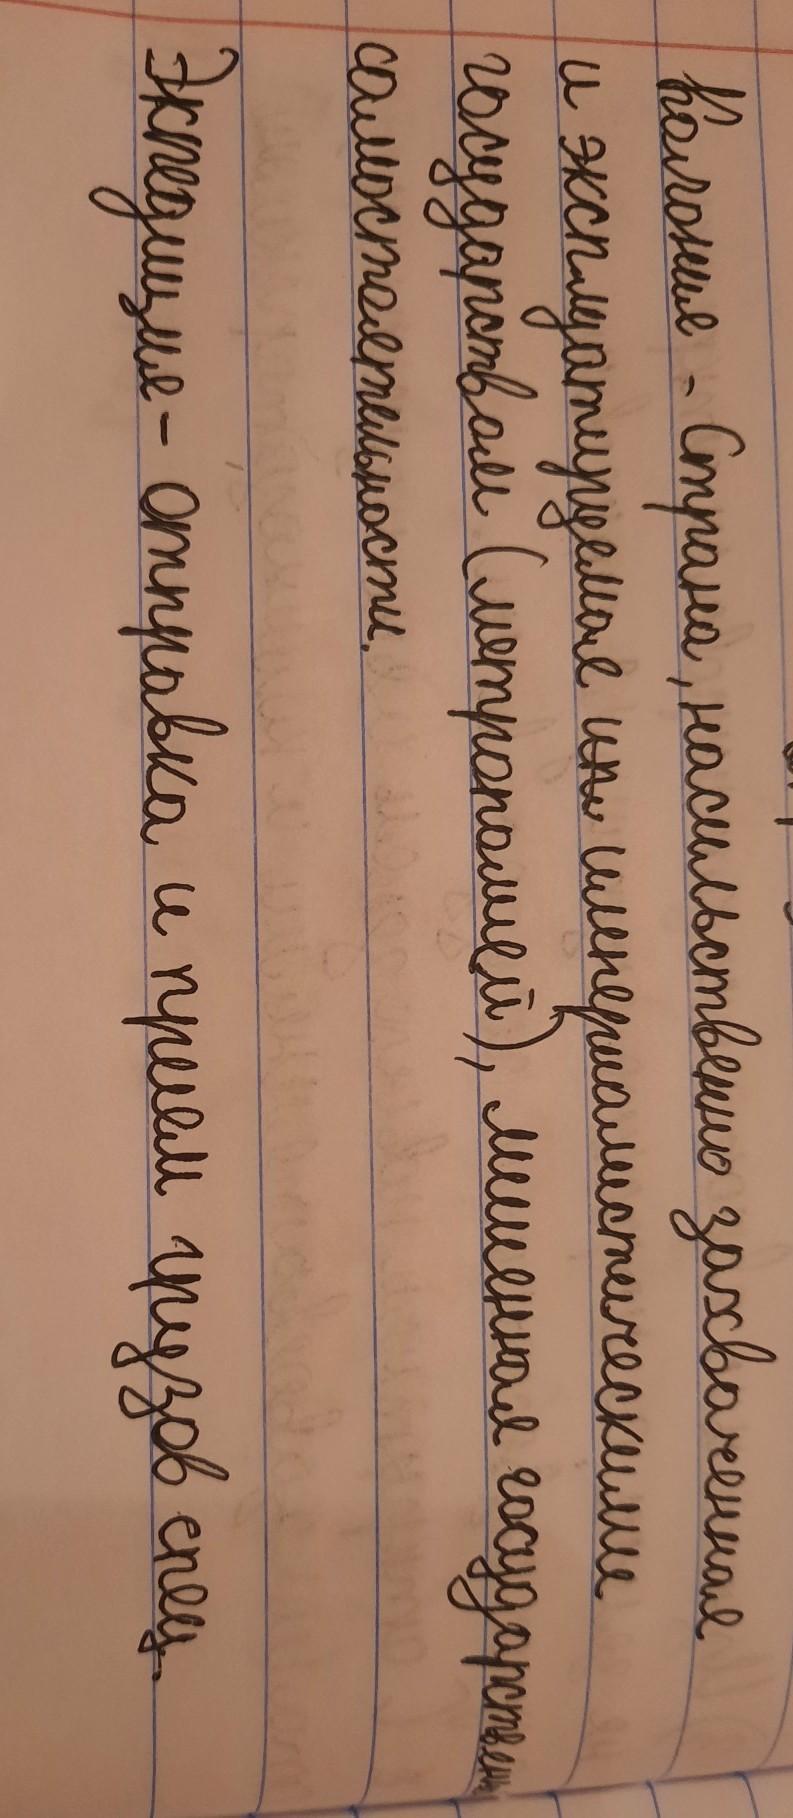 Колония - Страна, насильственно захваченная
и эксплуатируемая империалистическим
государством (метрополией), лишенная государственн
самостоятельности.
Экпедиция - отправка и прием грузов спец.